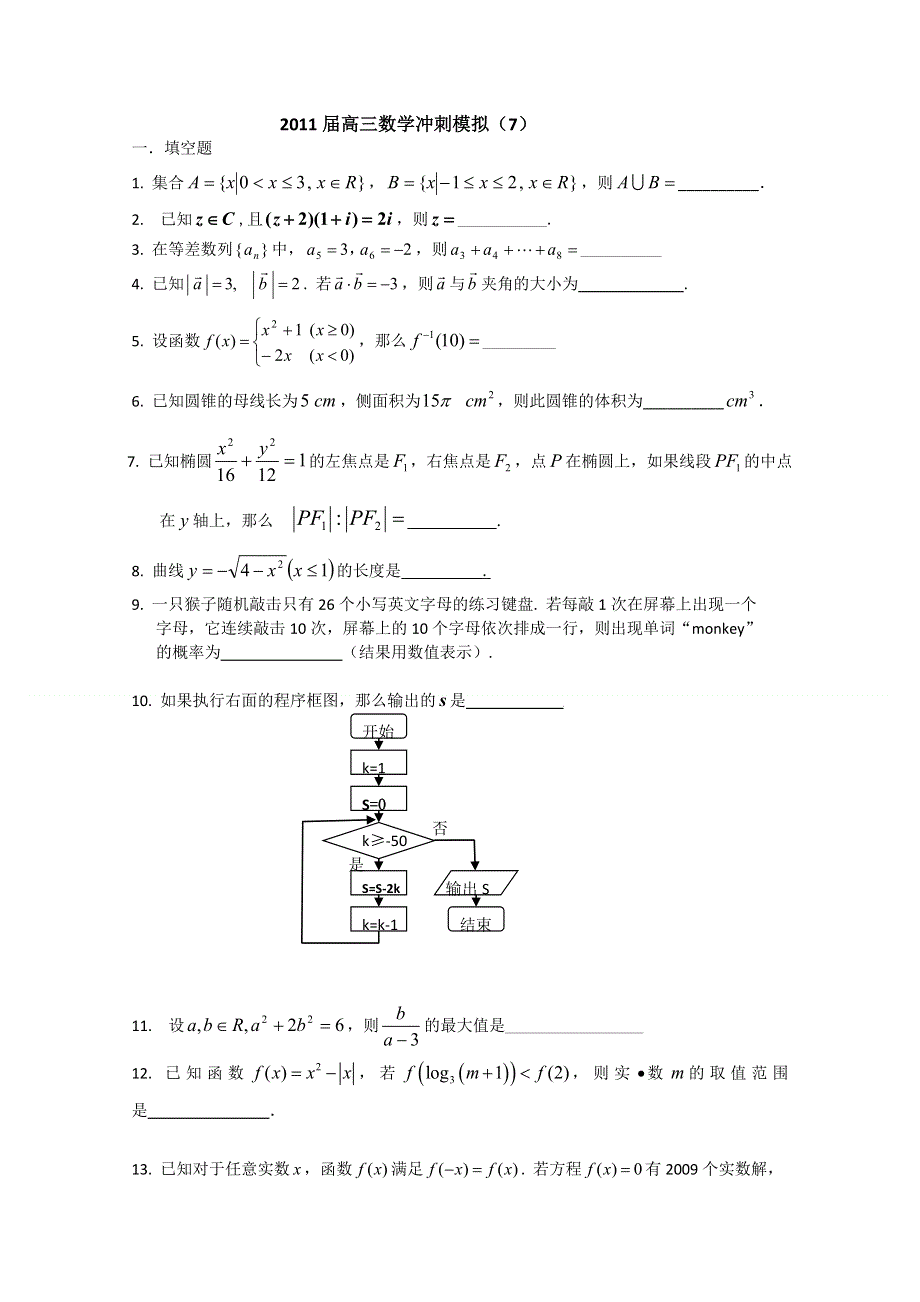 2011届高三数学冲刺模拟（7）
一．填空题
1. 集合 A = {x|0 < x ≤ 3, x ∈ R}，B = {x|−1 ≤ x ≤ 2, x ∈ R}，则 A⋃B = __________．
2. 已知 z ∈ C ,且 (z + 2)(1 + i) = 2i，则 z = ___________.
3. 在等差数列{aₙ}中，a₅ = 3，a₆ = −2，则 a₃ + a₄ + ⋯ + a₈ = __________
4. 已知 |a⃗| = 3, |b⃗| = 2．若 a⃗ · b⃗ = −3，则 a⃗ 与 b⃗ 夹角的大小为_____________.
5. 设函数 f(x) = { x² + 1 (x ≥ 0) −2x (x < 0)，那么 f⁻¹(10) = _________
6. 已知圆锥的母线长为5 cm，侧面积为15π cm²，则此圆锥的体积为__________cm³．
7. 已知椭圆 x²/16 + y²/12 = 1 的左焦点是 F₁，右焦点是 F₂，点 P 在椭圆上，如果线段 PF₁ 的中点
在 y 轴上，那么 |PF₁| : |PF₂| = ___________.
8. 曲线 y = −√(4 − x²) (x ≤ 1) 的长度是__________.
9. 一只猴子随机敲击只有26个小写英文字母的练习键盘. 若每敲1次在屏幕上出现一个
字母，它连续敲击10次，屏幕上的10个字母依次排成一行，则出现单词“monkey”
的概率为_______________（结果用数值表示）.
10. 如果执行右面的程序框图，那么输出的 s 是____________
开始
k=1
S=0
k≥-50
否
是
S=S-2k
输出 S
k=k-1
结束
11. 设 a, b ∈ R, a² + 2b² = 6，则 b/(a − 3) 的最大值是_________________
12. 已知函数 f(x) = x² − |x|，若 f(log₃(m + 1)) < f(2)，则实•数 m 的取值范围
是_______________．
13. 已知对于任意实数 x，函数 f(x) 满足 f(−x) = f(x)．若方程 f(x) = 0 有2009个实数解，